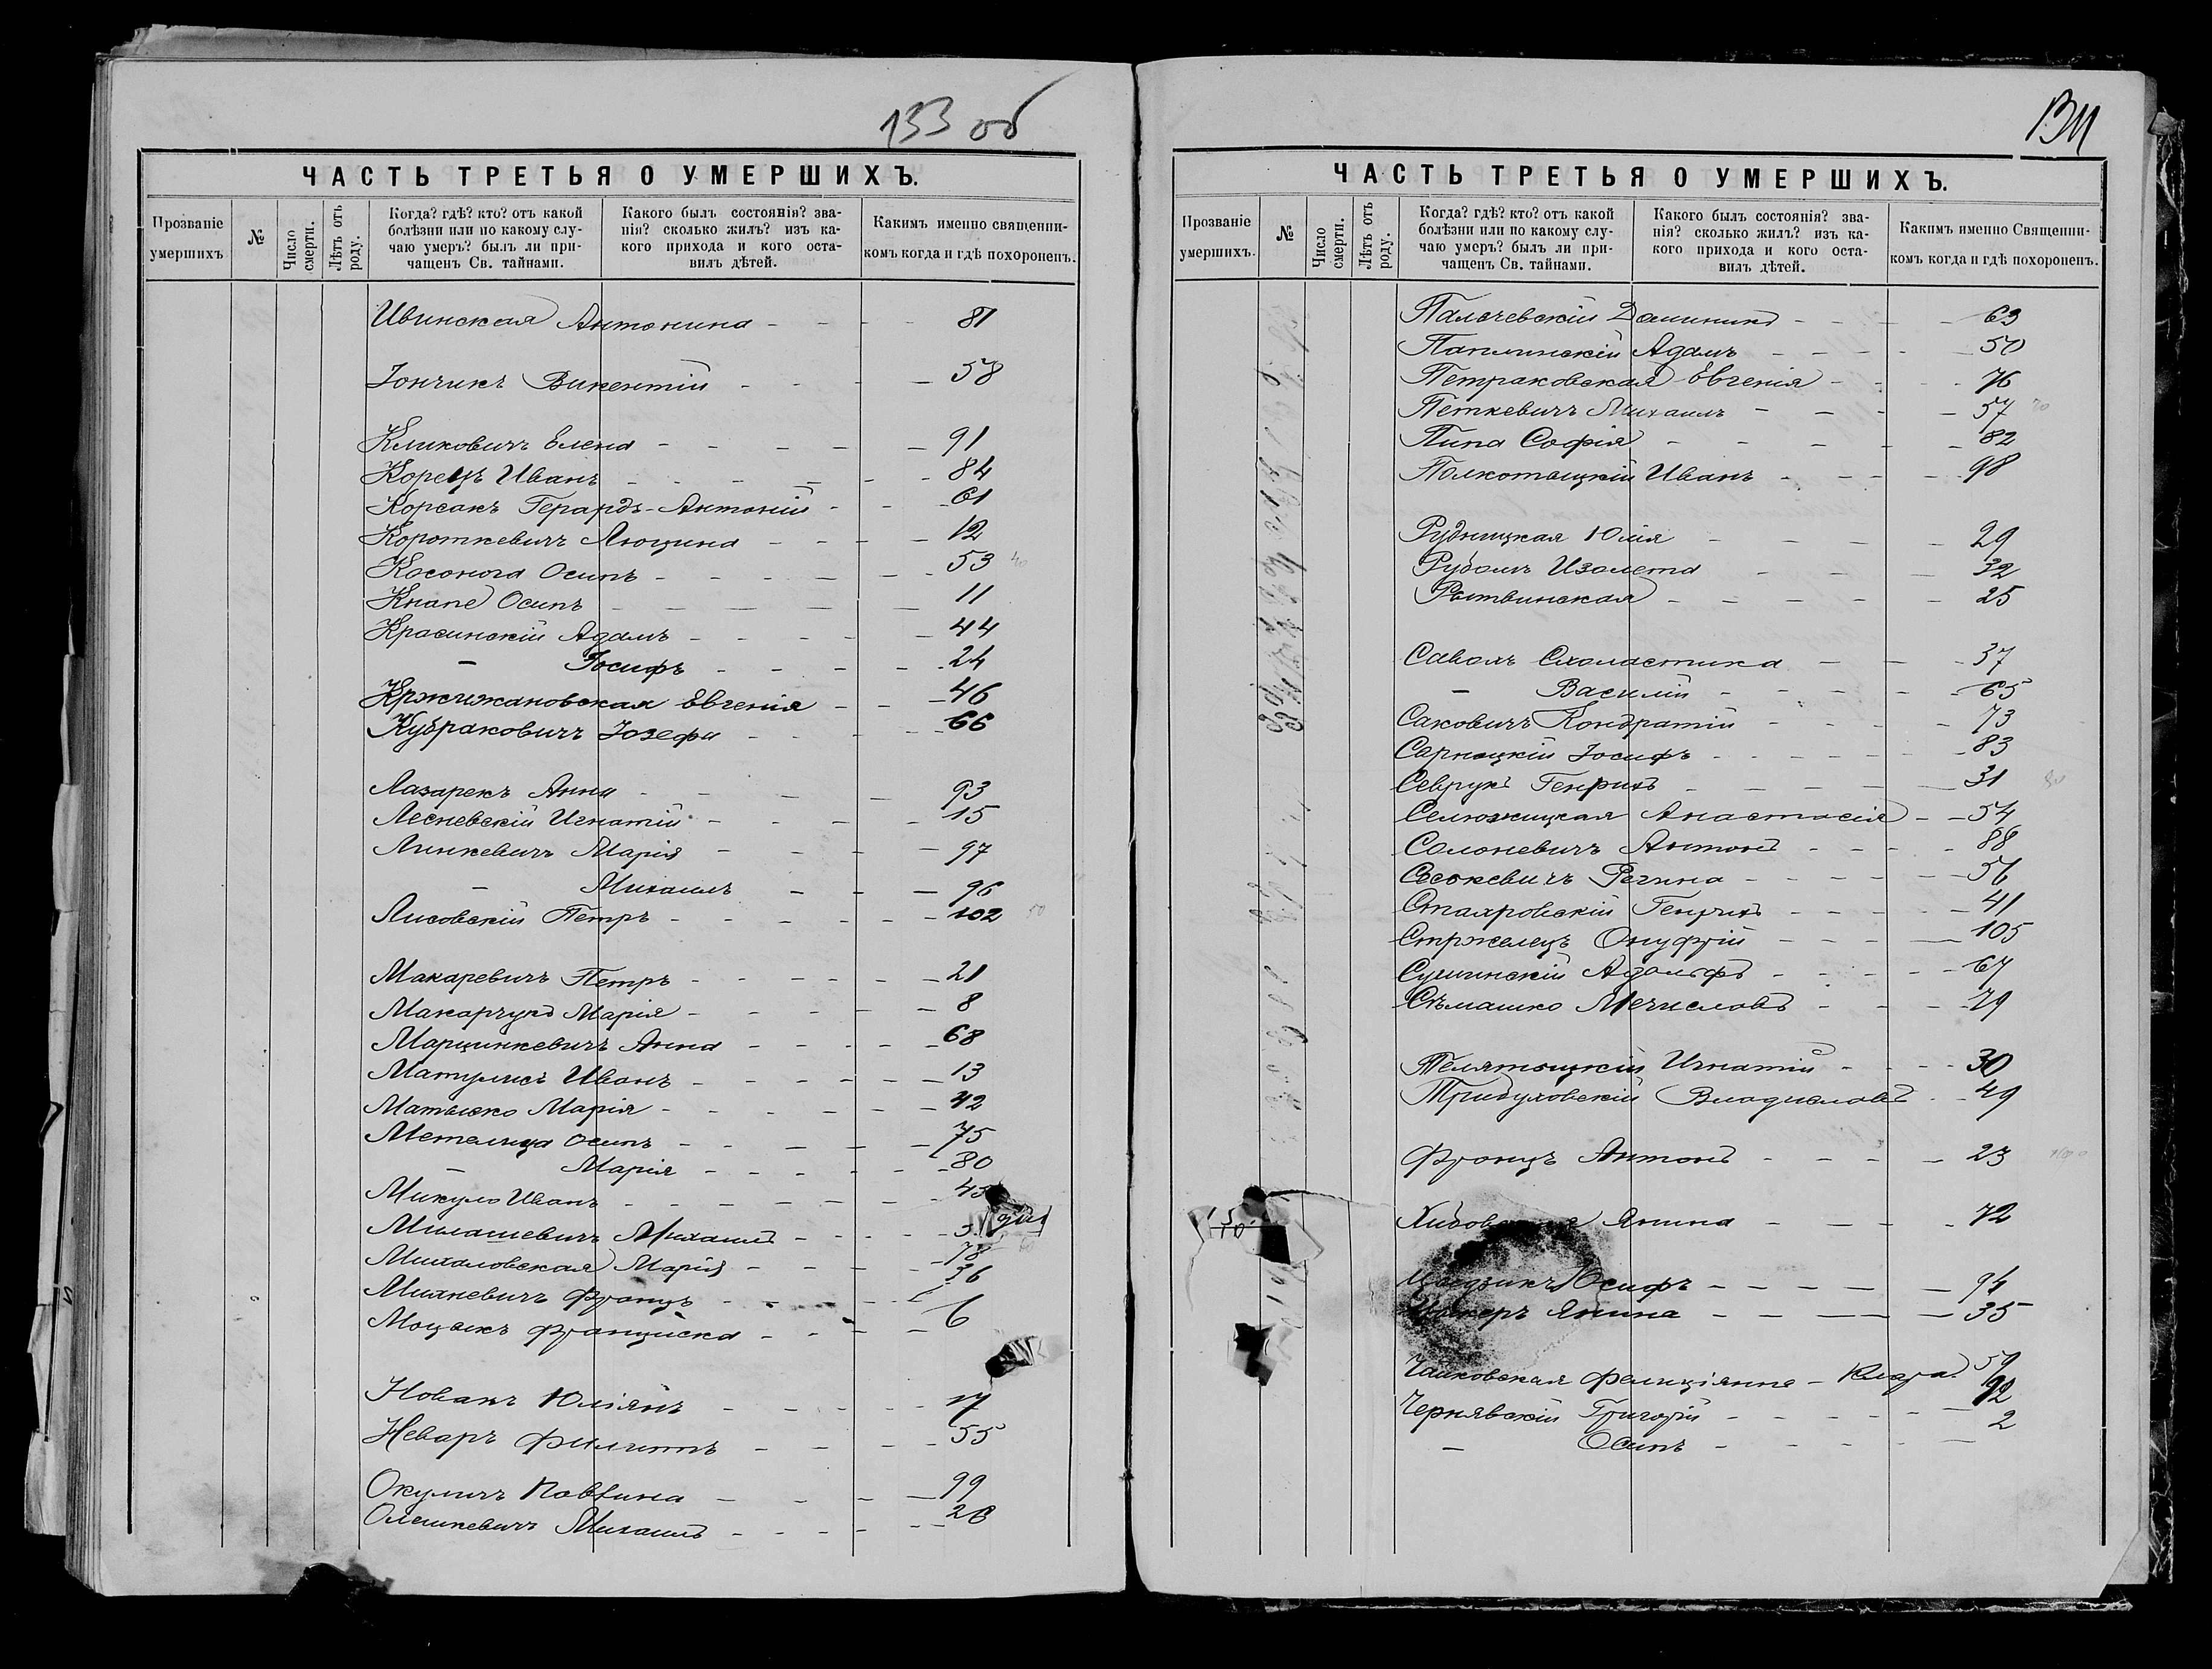 133 об
ЧАСТЬ ТРЕТЬЯ О УМЕРШИХЪ.
Прозваніе умершихъ
№
Число смерти.
Лѣтъ отъ роду.
Когда? гдѣ? кто? отъ какой болѣзни или по какому случаю умеръ? былъ ли причащенъ Св. тайнами.
Какого былъ состоянія? званія? сколько жилъ? изъ какого прихода и кого оставилъ дѣтей.
Какимъ именно священникомъ когда и гдѣ похороненъ.
Ивинская Антонина - - - 81
Іончикъ Викентій - - - 58
Кликовичъ Елена - - - 91
Корецъ Иванъ - - - 84
Корсакъ Герардъ-Антоній - - - 61
Короткевичъ Люцина - - - 12
Косонога Осипъ - - - 53
Кнапе Осипъ - - - 11
Красинскій Адамъ - - - 44
- Іосифъ - - - 24
Кржижановская Евгенія - - - 46
Кубраковичъ Іозефа - - - 66
Лазарекъ Анна - - - 93
Лесневскій Игнатій - - - 15
Линкевичъ Марія - - - 97
- Михаилъ - - - 96
Лисовскій Петръ - - - 102
Макаревичъ Петръ - - - 21
Макарчукъ Марія - - - 8
Марцинкевичъ Анна - - - 68
Матулисъ Иванъ - - - 13
Матыско Марія - - - 42
Метелица Осипъ - - - 75
- Марія - - - 80
Микуло Иванъ - - -
Милашевичъ Михаилъ - - -
Михаловская Марія - - - 78
Михневичъ Францъ - - - 36
Моцыкъ Франциска - - - 6
Новакъ Юліянъ - - - 17
Неваръ Филиппъ - - - 55
Окуличъ Павлина - - - 99
Олешкевичъ Михаилъ - - - 28
134
ЧАСТЬ ТРЕТЬЯ О УМЕРШИХЪ.
Прозваніе умершихъ.
№
Число смерти.
Лѣтъ отъ роду.
Когда? гдѣ? кто? отъ какой болѣзни или по какому случаю умеръ? былъ ли причащенъ Св. тайнами.
Какого былъ состоянія? званія? сколько жилъ? изъ какого прихода и кого оставилъ дѣтей.
Какимъ именно Священникомъ когда и гдѣ похороненъ.
Пальчевскій Доминикъ - - - 63
Паплинскій Адамъ - - - 50
Петраковская Евгенія - - - 76
Петкевичъ Михаилъ - - - 57
Пипа Софія - - - 82
Полкотыцкій Иванъ - - - 98
Рудницкая Юлія - - - 29
Рубомъ Изолета - - - 32
Рытвинская - - - 25
Саваль Схоластика - - - 37
- Василій - - - 65
Саковичъ Кондратій - - - 73
Сарнацкій Іосифъ - - - 83
Севрукъ Генрихъ - - - 31
Селюжицкая Анастасія - - 54
Солоневичъ Антонъ - - - 88
Сосокевичъ Регина - - - 56
Столяровскій Генрихъ - - - 41
Стржелецъ Онуфрій - - - 105
Сушинскій Адольфъ - - - 67
Сѣмашко Мечиславъ - - - 79
Телятыцкій Игнатій - - - 30
Тридуховскій Владиславъ - - 49
Францъ Антонъ - - - 23
Янина - - - 72
Осифъ - - - 94
Янина - - - 35
Чайковская Фелиціянна - Клара 59
Чернявскій Григорій - - - 92
- Осипъ - - - 2